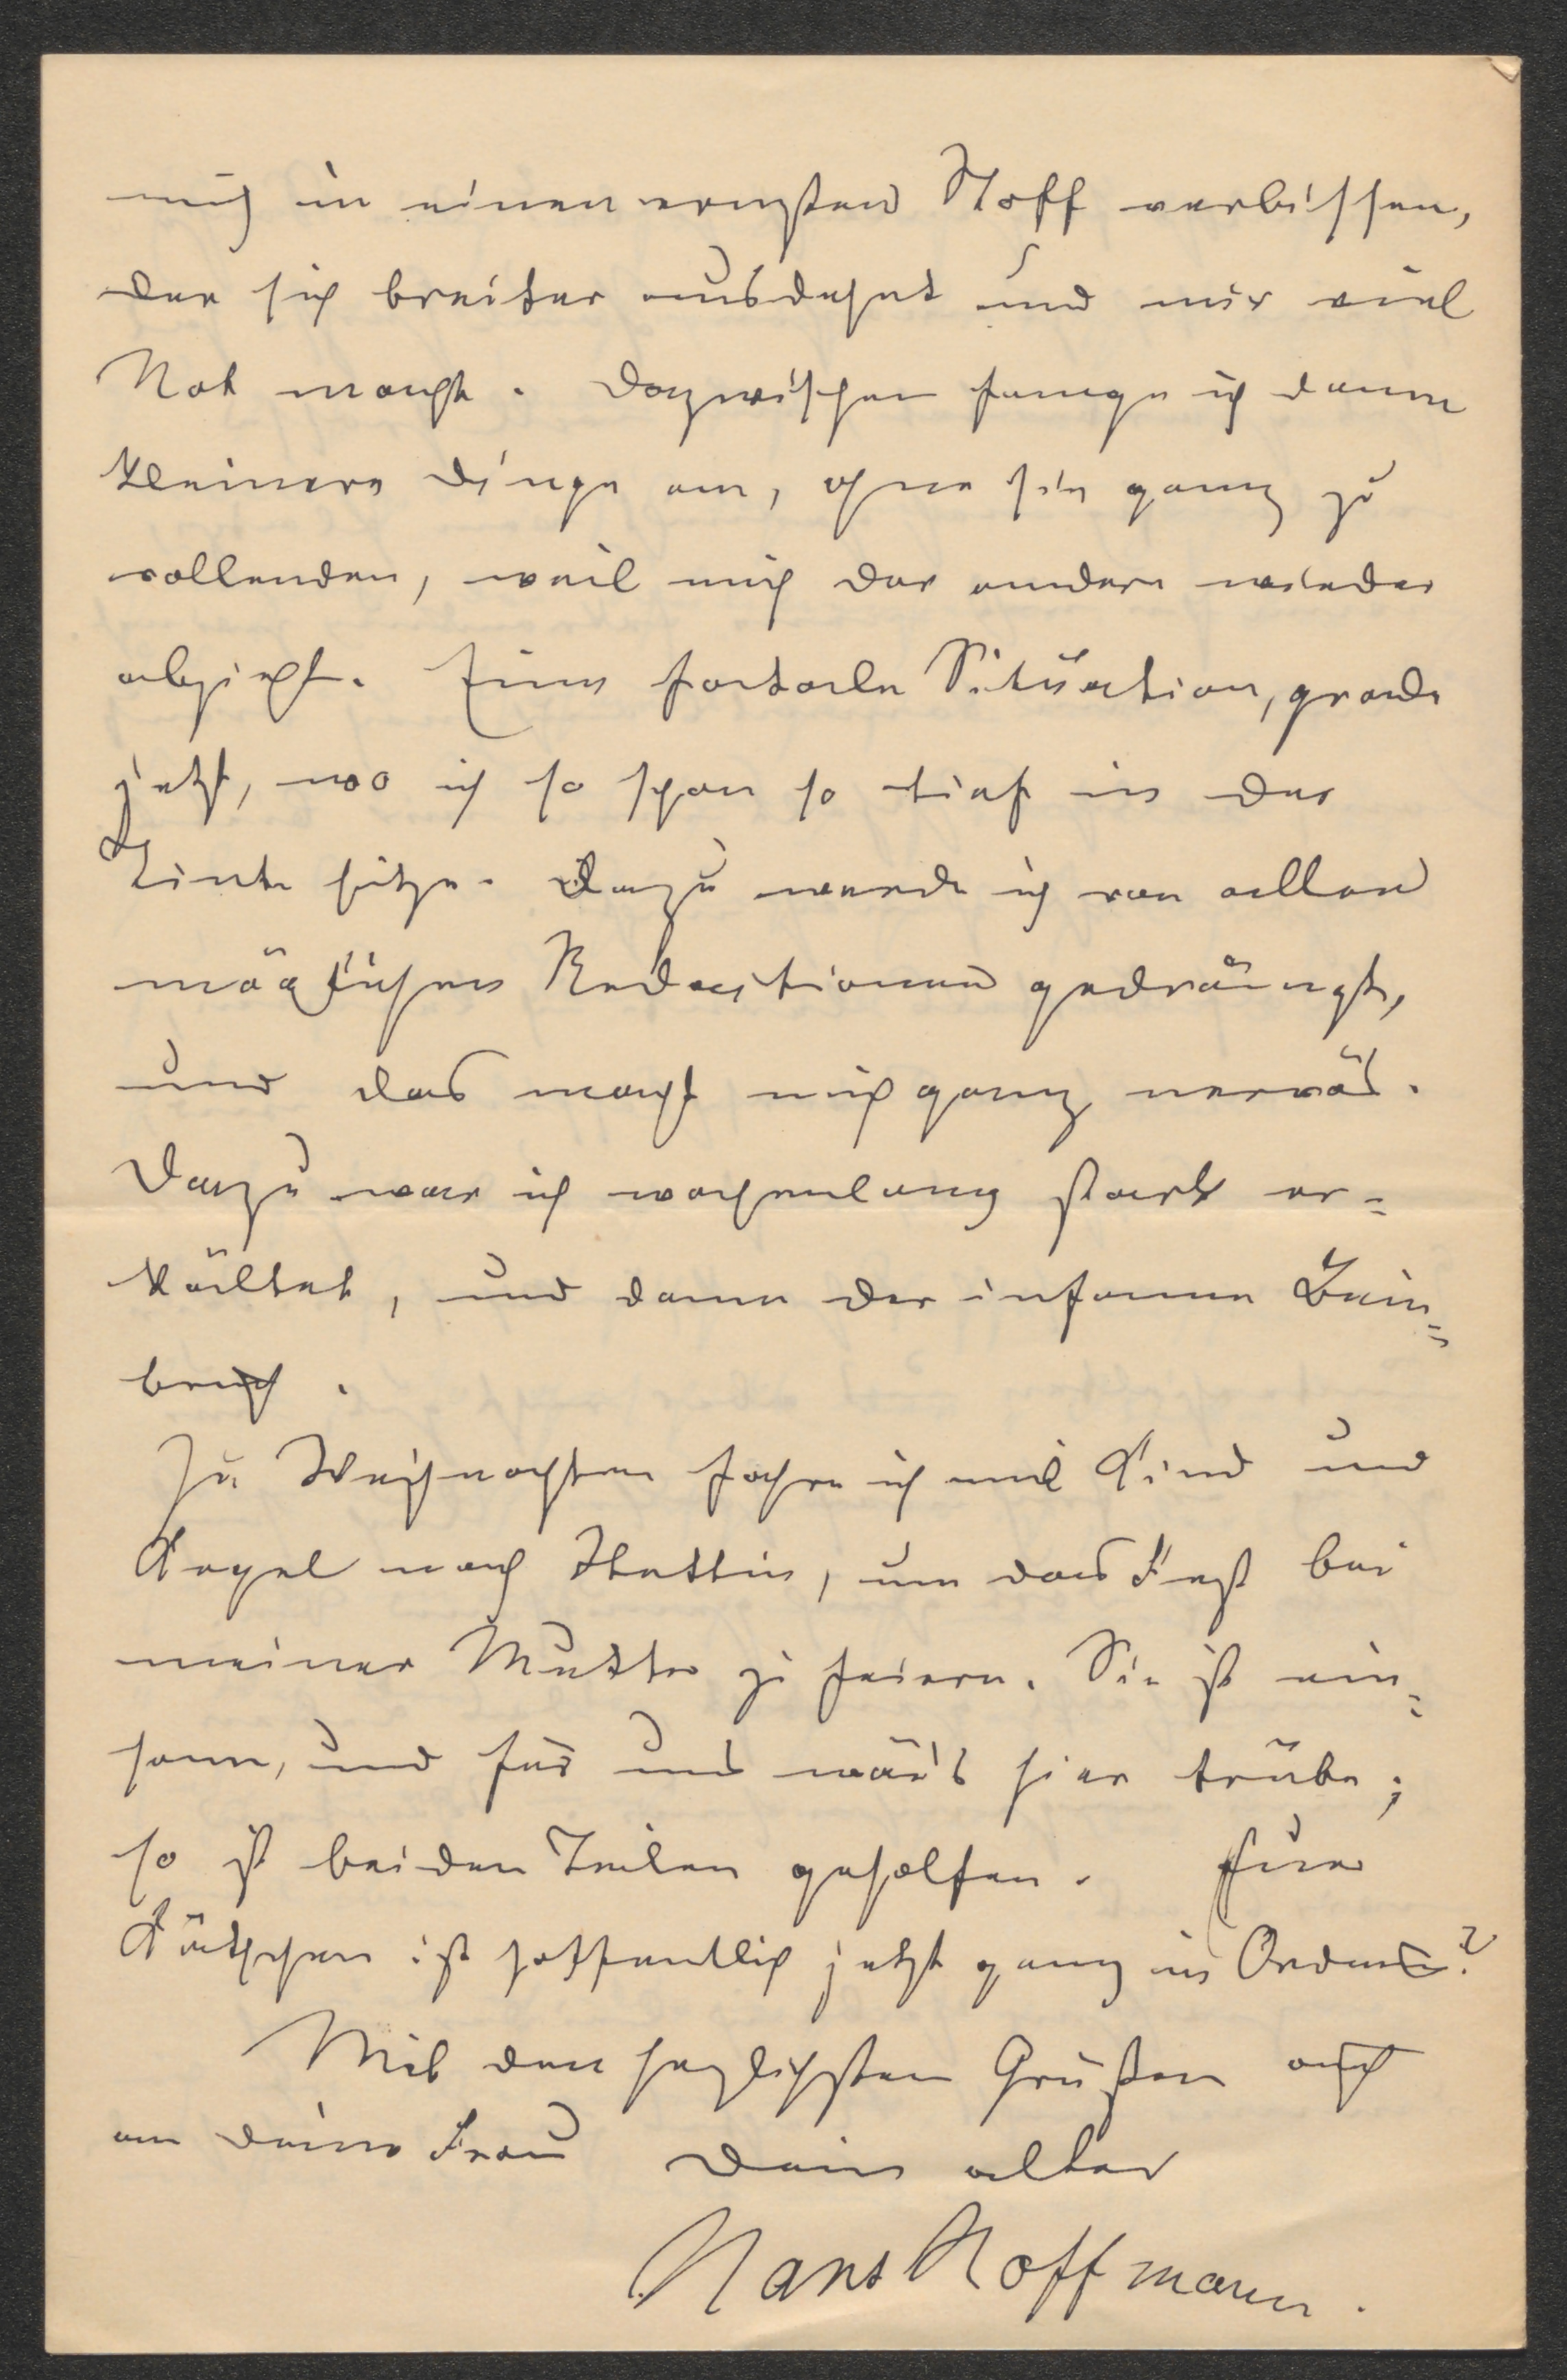 mich in einen ernsten Stoff verbissen,
der sich breiter ausdehnt und mir viel
Not macht. Dazwischen fange ich dann
kleinere Dinge an, ohne sie ganz zu
vollenden, weil mich der andere wieder
abzieht. Eine fatale Situation, grade
jetzt, wo ich so schon so tief in der
Tinte sitze. Dazu werde ich von allen
möglichen Redactionen gedrängt,
und das macht mich ganz nervös.
Dazu war ich wochenlang stark er=
kältet, und dann der infame Bein=
bruch.
Zu Weihnachten fahre ich mit Kind und
Kegel nach Stettin, um das Fest bei
meiner Mutter zu feiern. Sie ist ein=
sam, und für uns wär's hier trübe;
so ist beiden Teilen geholfen. Eure
Käthchen ist hoffentlich jetzt ganz in Ordnung?
Mit den herzlichsten Grüßen auch
an Deine Frau Dein alter
Hans Hoffmann.